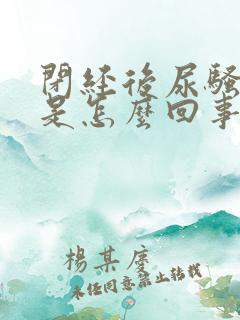 閉经後尿騷
是怎麼回事
楊某度
未经同意禁止转载